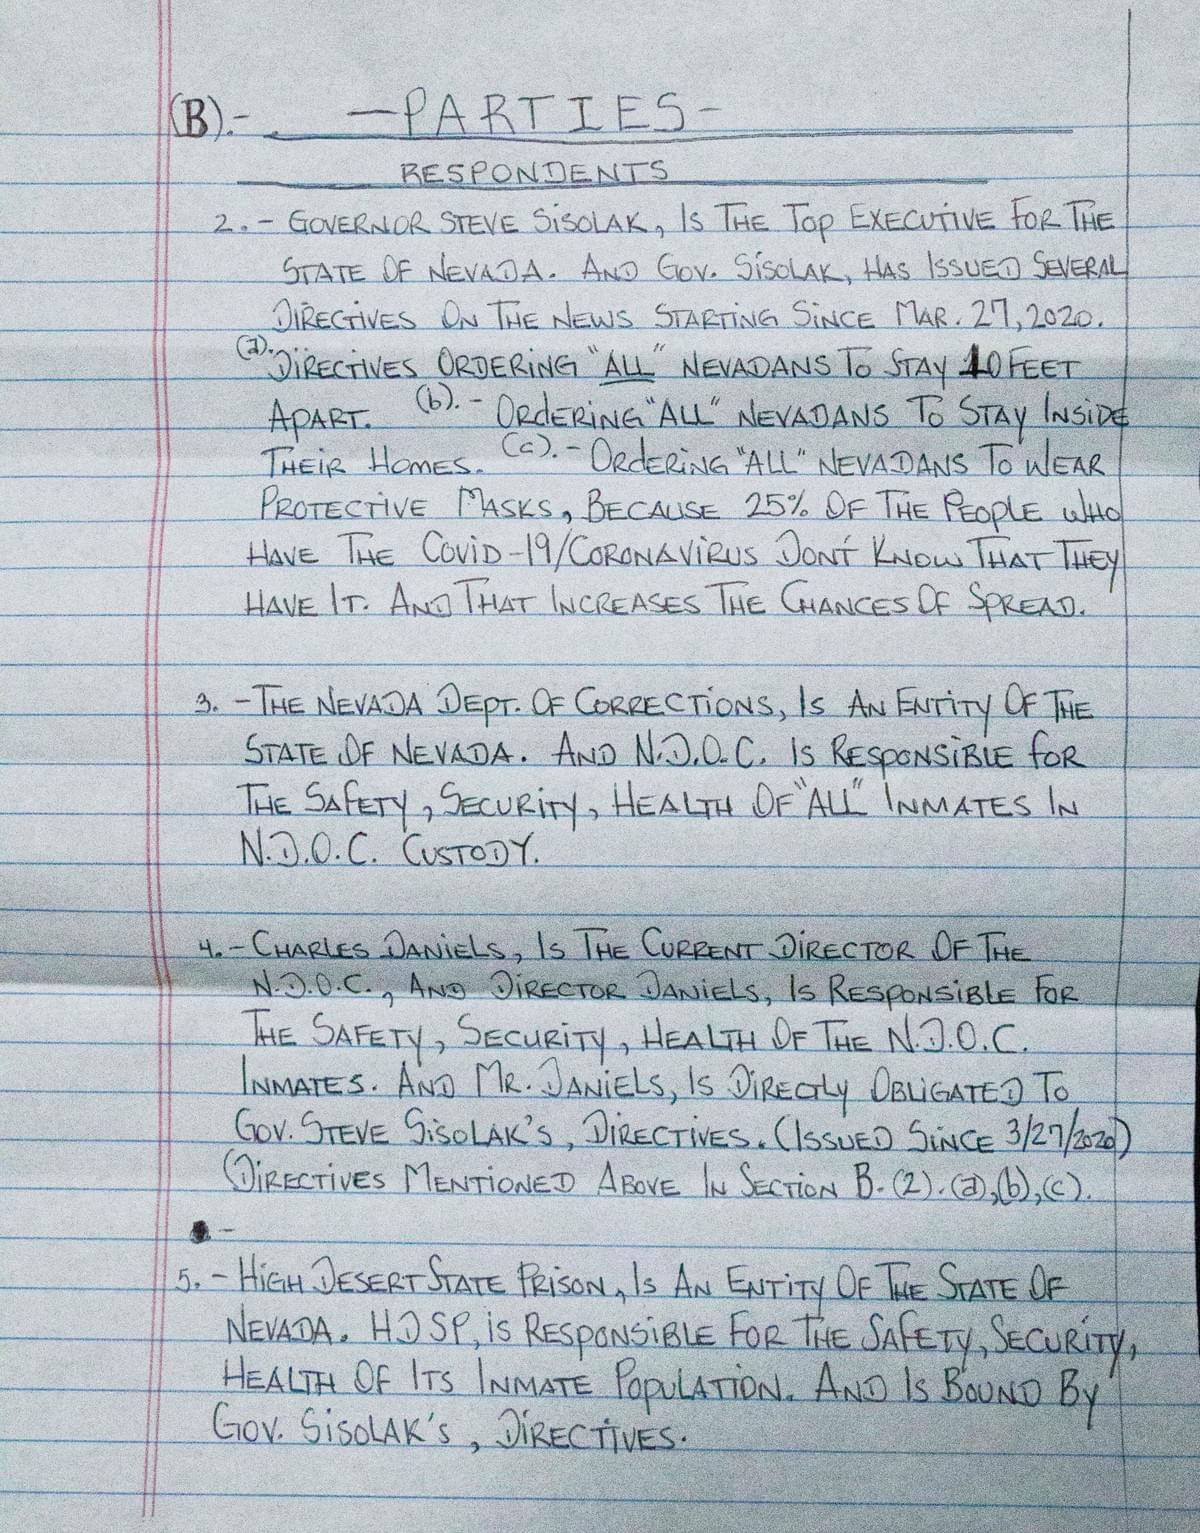 (B).- -PARTIES-
RESPONDENTS
2.- GOVERNOR STEVE SISOLAK, IS THE TOP EXECUTIVE FOR THE
STATE OF NEVADA. AND GOV. SISOLAK, HAS ISSUED SEVERAL
DIRECTIVES ON THE NEWS STARTING SINCE MAR. 27, 2020.
(a).- DIRECTIVES ORDERING "ALL" NEVADANS TO STAY 10 FEET
APART. (b).- ORDERING "ALL" NEVADANS TO STAY INSIDE
THEIR HOMES. (c).- ORDERING "ALL" NEVADANS TO WEAR
PROTECTIVE MASKS, BECAUSE 25% OF THE PEOPLE WHO
HAVE THE COVID-19/CORONAVIRUS DON'T KNOW THAT THEY
HAVE IT. AND THAT INCREASES THE CHANCES OF SPREAD.
3. - THE NEVADA DEPT. OF CORRECTIONS, IS AN ENTITY OF THE
STATE OF NEVADA. AND N.D.O.C. IS RESPONSIBLE FOR
THE SAFETY, SECURITY, HEALTH OF "ALL" INMATES IN
N.D.O.C. CUSTODY.
4. - CHARLES DANIELS, IS THE CURRENT DIRECTOR OF THE
N.D.O.C., AND DIRECTOR DANIELS, IS RESPONSIBLE FOR
THE SAFETY, SECURITY, HEALTH OF THE N.D.O.C.
INMATES. AND MR. DANIELS, IS DIRECTLY OBLIGATED TO
GOV. STEVE SISOLAK'S, DIRECTIVES. (ISSUED SINCE 3/27/2020)
(DIRECTIVES MENTIONED ABOVE IN SECTION B-(2).(a),(b),(c).
-
5. - HIGH DESERT STATE PRISON, IS AN ENTITY OF THE STATE OF
NEVADA. HDSP, IS RESPONSIBLE FOR THE SAFETY, SECURITY,
HEALTH OF ITS INMATE POPULATION. AND IS BOUND BY
GOV. SISOLAK'S, DIRECTIVES.